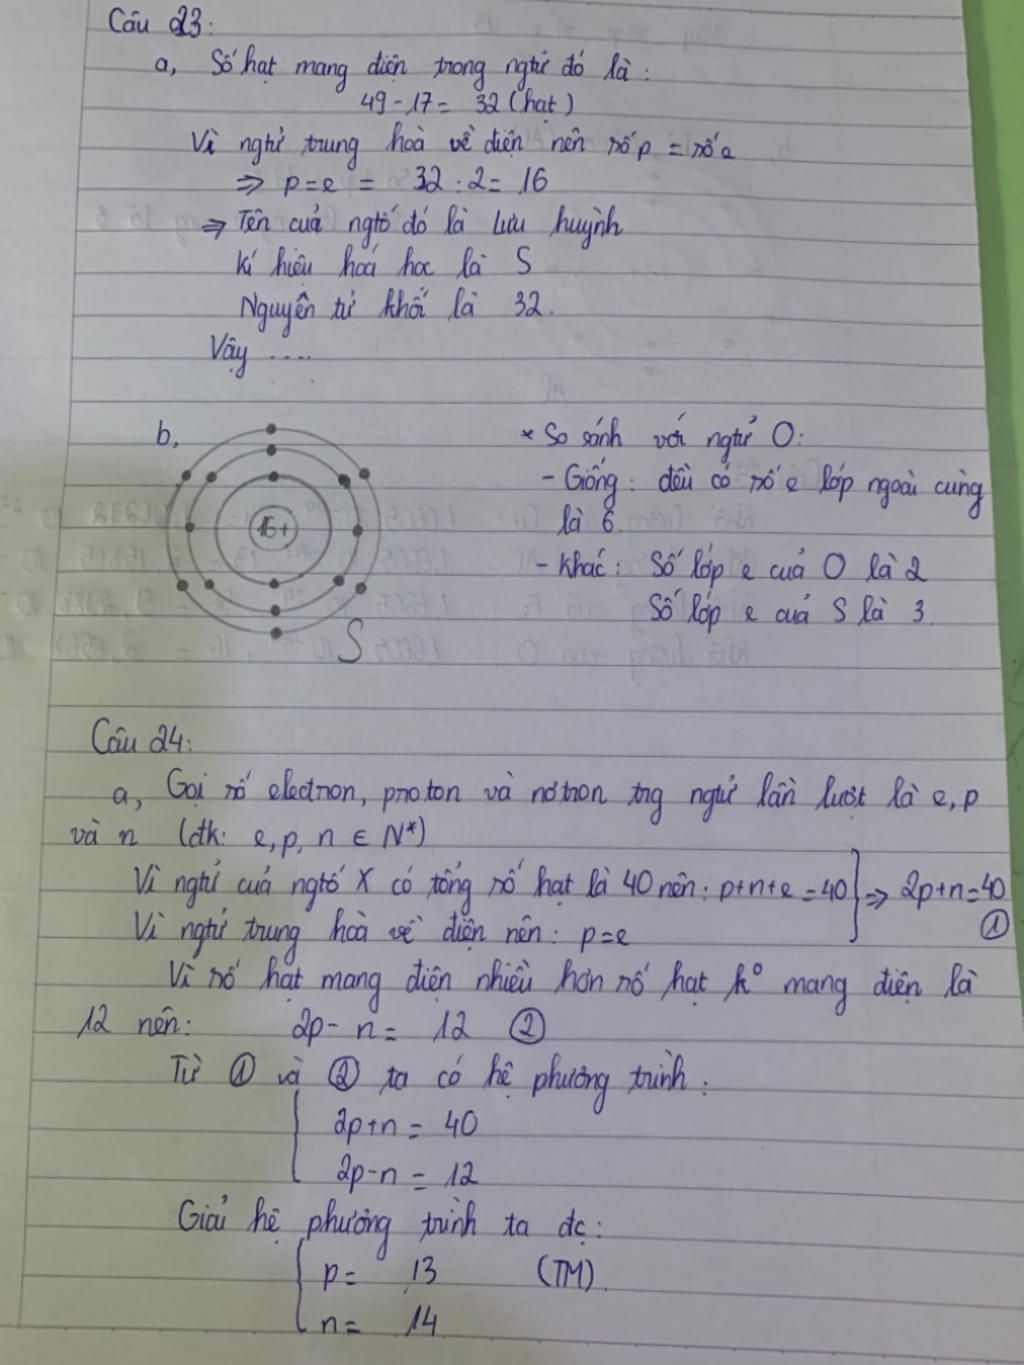 Câu 23:
a, Số hạt mang điện trong ngtử đó là:
49 - 17 = 32 (hạt)
Vì ngtử trung hoà về điện nên số p = số e
=> p = e = 32 : 2 = 16
=> Tên của ngtố đó là Lưu huỳnh
Kí hiệu hoá học là S
Nguyên tử khối là 32.
Vậy ....
b,
16+
S
* So sánh với ngtử O:
- Giống: đều có số e lớp ngoài cùng
là 6.
- Khác: Số lớp e của O là 2
Số lớp e của S là 3.
Câu 24:
a, Gọi số electron, proton và nơtron trg ngtử lần lượt là e, p
và n (đk: e, p, n ∈ N*)
Vì ngtử của ngtố X có tổng số hạt là 40 nên: p+n+e = 40 => 2p+n = 40
Vì ngtử trung hoà về điện nên: p = e ①
Vì số hạt mang điện nhiều hơn số hạt k° mang điện là
12 nên: 2p - n = 12 ②
Từ ① và ② ta có hệ phương trình:
2p+n = 40
2p-n = 12
Giải hệ phương trình ta đc:
p = 13 (TM)
n = 14